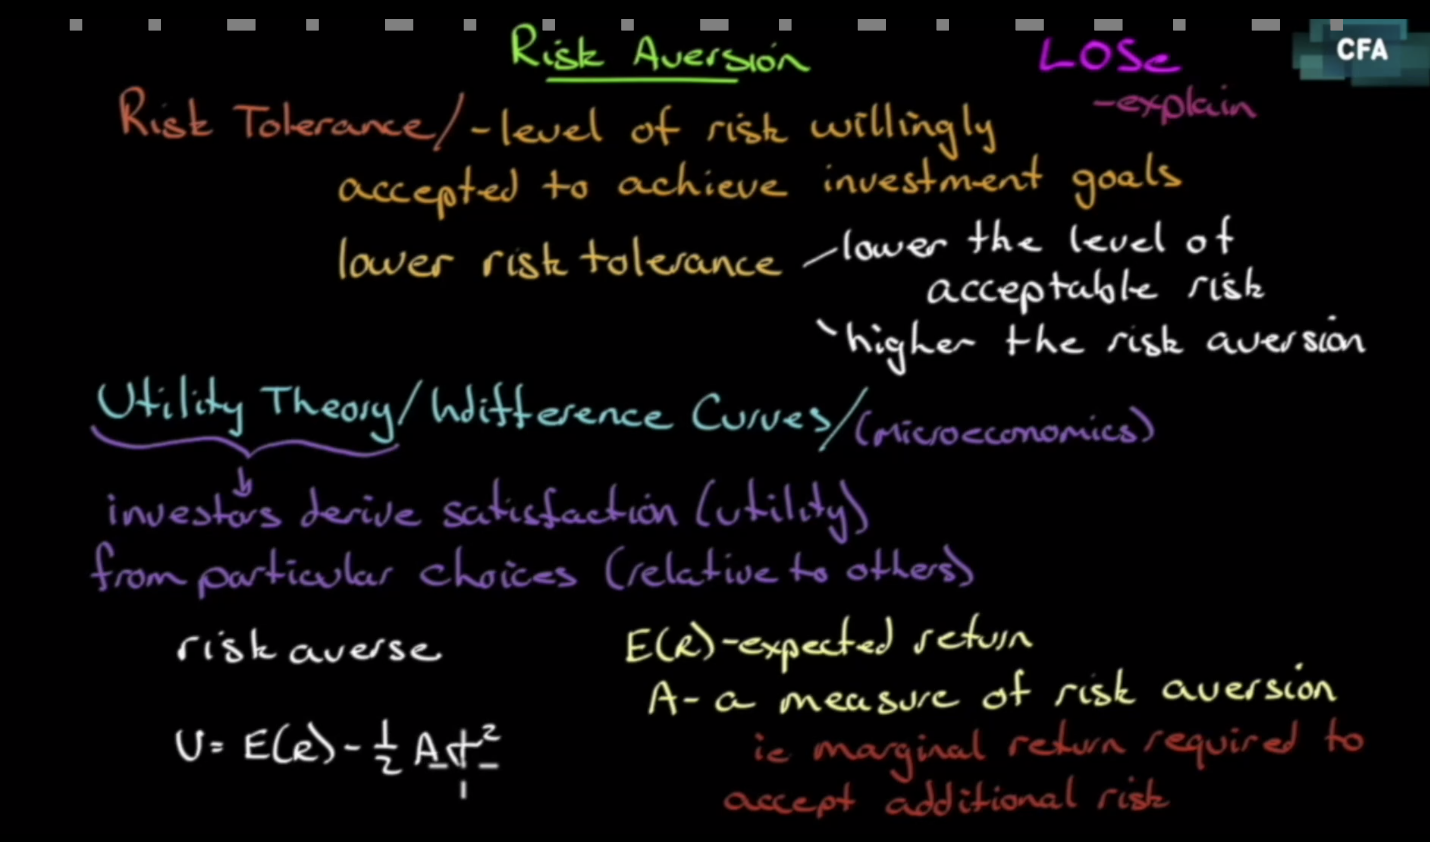 Risk Aversion
LOSe
CFA
-explain
Risk Tolerance/ -level of risk willingly
accepted to achieve investment goals
lower risk tolerance
lower the level of
acceptable risk
higher the risk aversion
Utility Theory/Indifference Curves/(microeconomics)
investors derive satisfaction (utility)
from particular choices (relative to others)
risk averse
E(R)-expected return
A- a measure of risk aversion
ie marginal return required to
accept additional risk
U= E(R) - 1/2 Aσ²